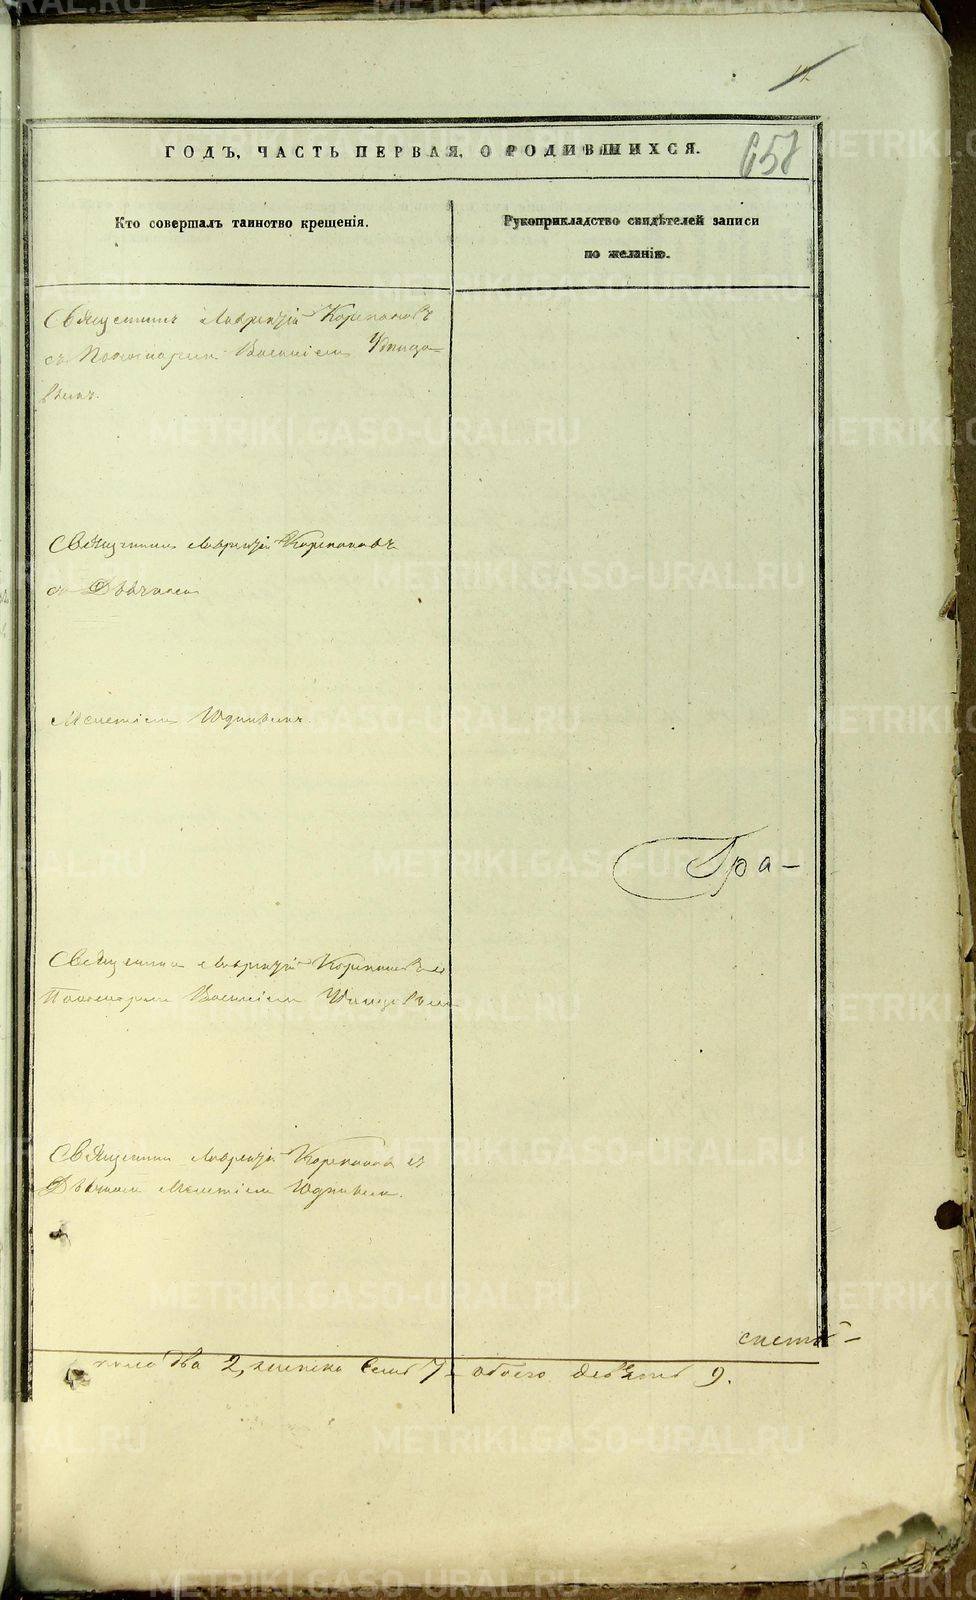 12
657
ГОДЪ, ЧАСТЬ ПЕРВАЯ, О РОДИВШИХСЯ.
Кто совершалъ таинство крещенія.
Рукоприкладство свидѣтелей записи
по желанію.
Священникъ Лаврентій Корепановъ
съ Пономаремъ Василіемъ
Священникъ Лаврентій Корепановъ
съ Дьячкомъ
Мелетіемъ Юдинымъ.
Гра-
Священникъ Лаврентій Корепановъ съ
Пономаремъ Василіемъ
Священникъ Лаврентій Корепановъ съ
Дьячкомъ Мелетіемъ Юдинымъ.
пола два 2, женска семь 7 - обоего девять 9.
METRIKI.GASO-URAL.RU